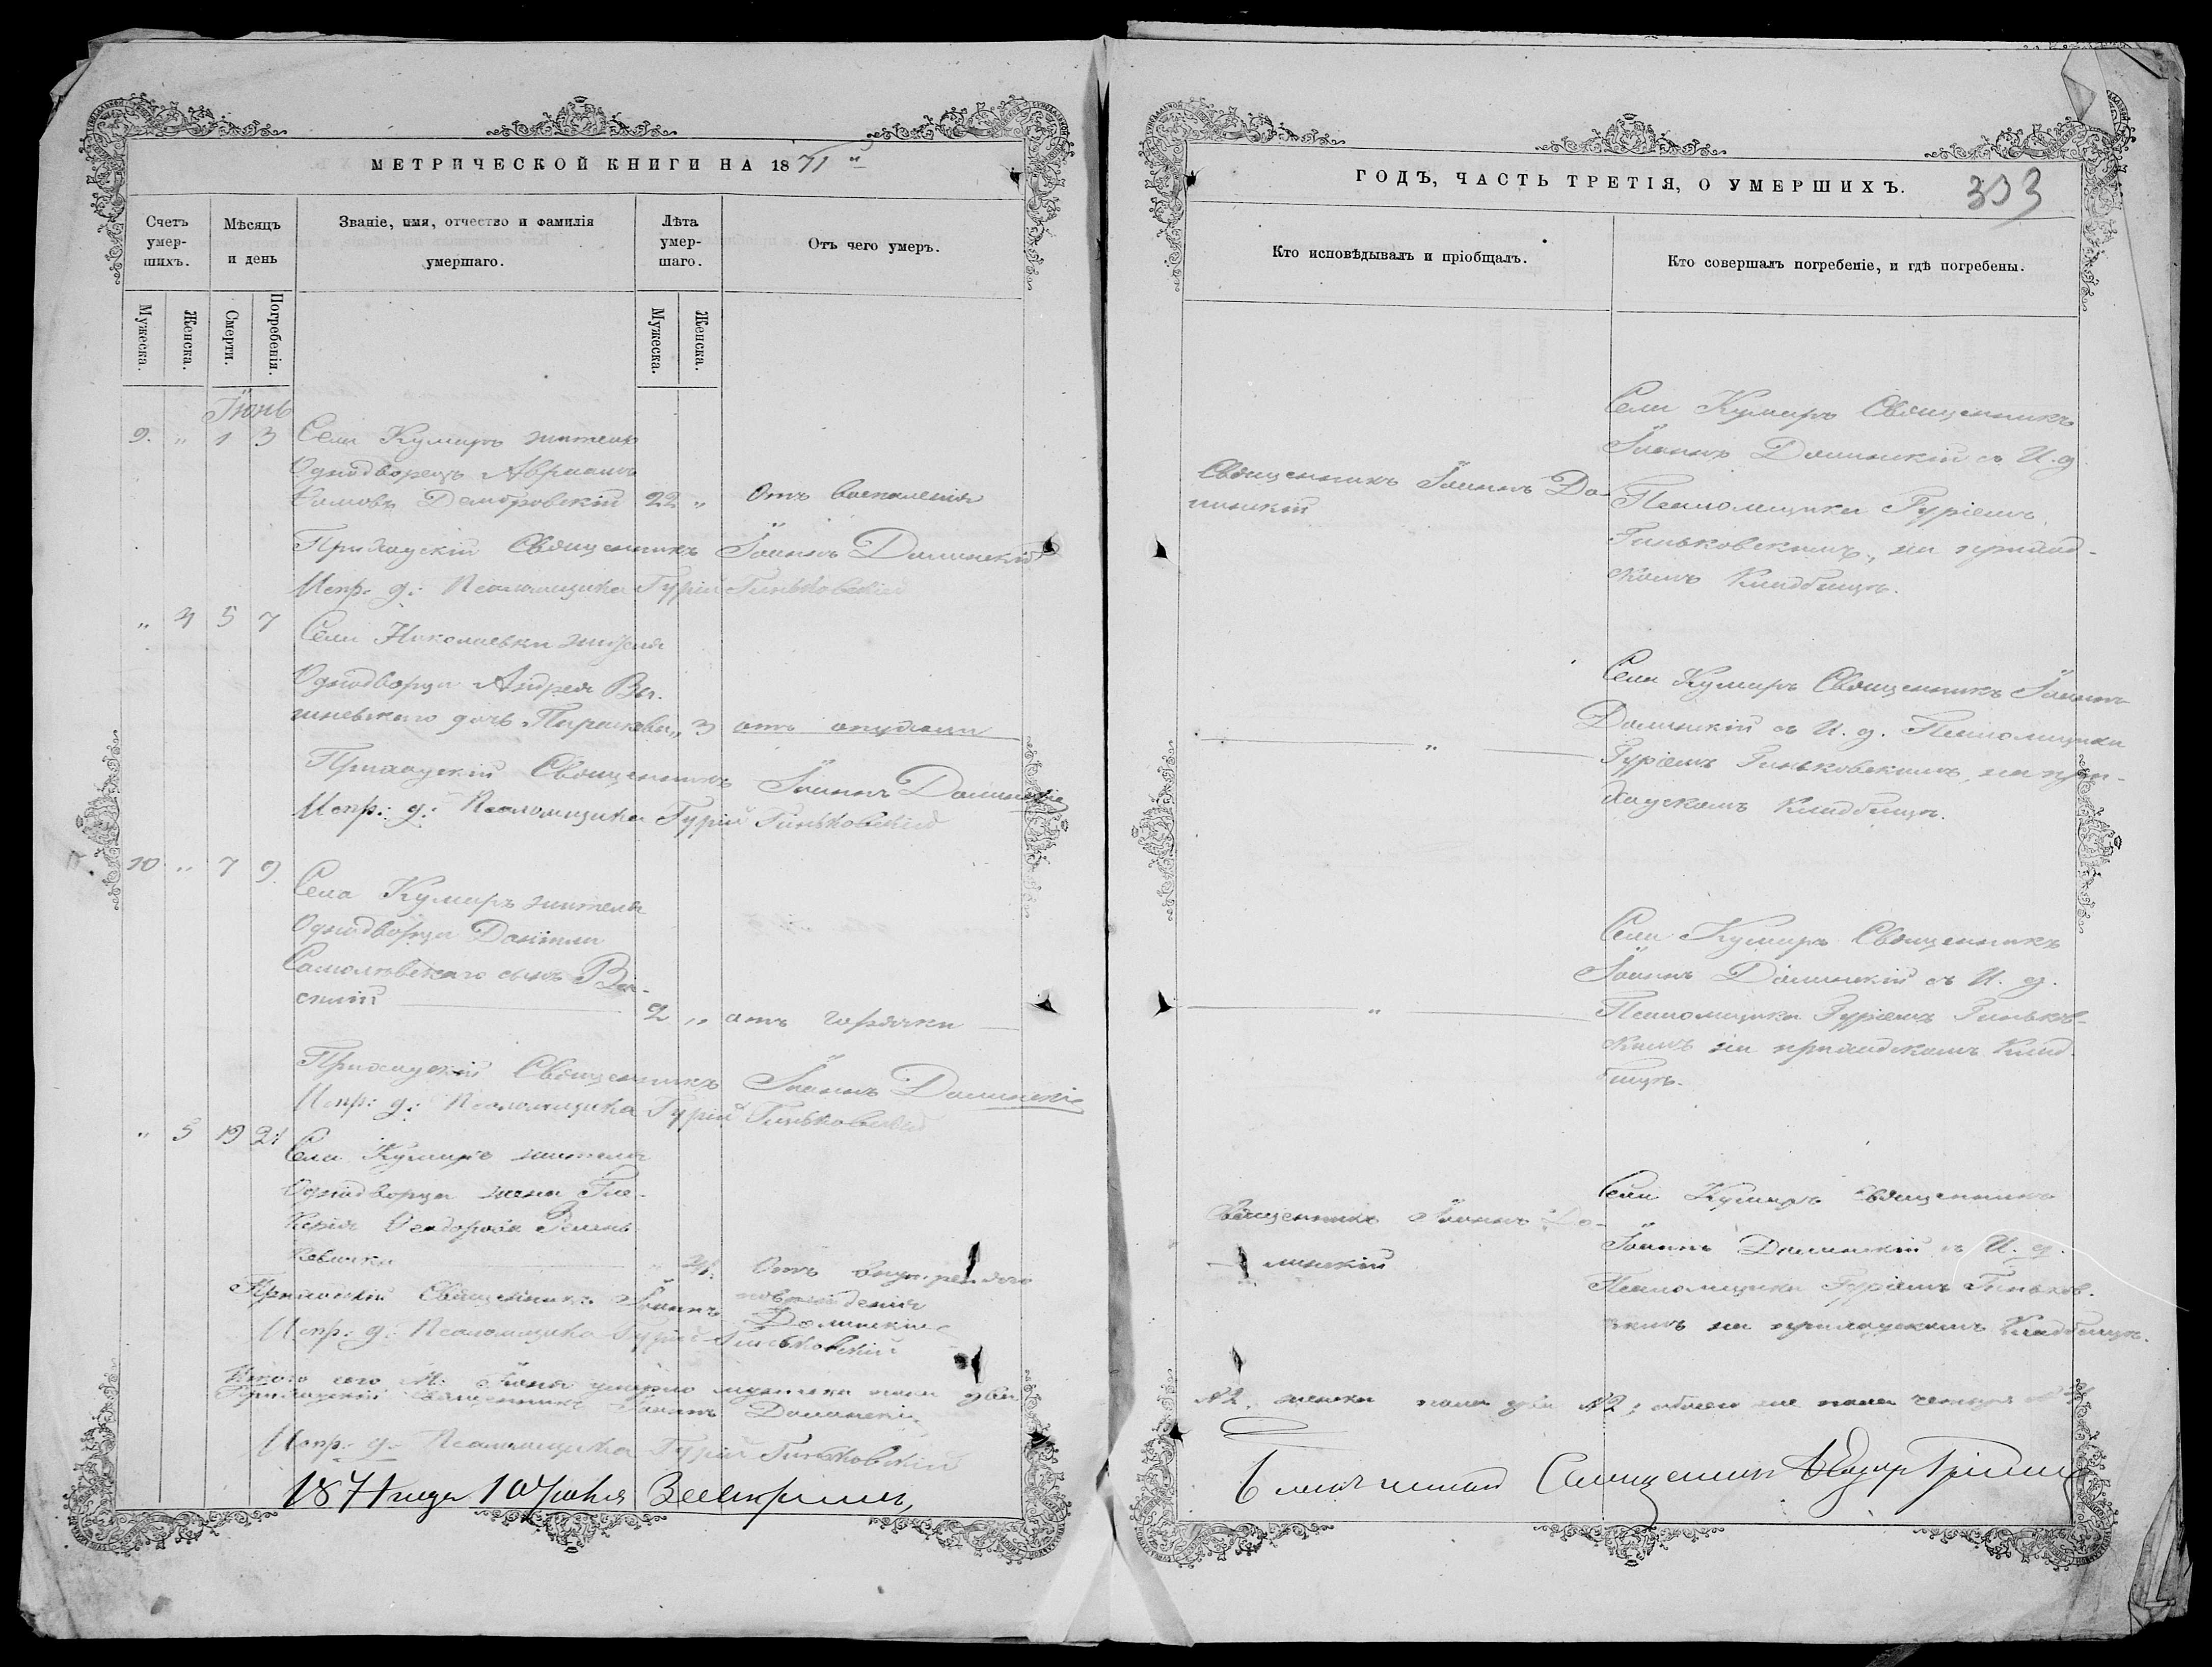 МЕТРИЧЕСКОЙ КНИГИ НА 1871
Счетъ умер-шихъ.
Мѣсяцъ и день
Званіе, имя, отчество и фамилія умершаго.
Лѣта умер-шаго.
Отъ чего умеръ.
Мужеска.
Женска.
Смерти.
Погребенія.
Мужеска.
Женска.
Іюнь
9. " 1 3 Села Кумаръ житель
Однодворецъ Авраамъ
Домбровскій 22 " Отъ воспаленія
Приходскій Священникъ Іоаннъ Долинскій
Испр: д: Псаломщика Гурій Гиньковскій
" 4 5 7 Села Николаевки жителя
Однодворца Андрея Ви-
шневскаго дочь Параскева " 3 отъ опухоли
Приходскій Священникъ Іоаннъ Долинскій
Испр: д: Псаломщика Гурій Гиньковскій
10 " 7 9. Села Кумаръ жителя
Однодворца Даніила
сынъ Ва-
силій 2 " отъ горячки
Приходскій Священникъ Іоаннъ Долинскій
Испр: д: Псаломщика Гурій Гиньковскій
" 5 19 21 Села Кумаръ жителя
Однодворца жена Гли-
керія Ѳеодорова
Отъ внутренняго
поврежденія
Приходскій Священникъ Іоаннъ Долинскій
Испр: д: Псаломщика Гурій Гиньковскій
Всего сего М: Іюня умерло мужеска пола два
Приходскій Священникъ Іоаннъ Долинскій
Испр: д: Псаломщика Гурій Гиньковскій
1871 года
ГОДЪ, ЧАСТЬ ТРЕТІЯ, О УМЕРШИХЪ.
Кто исповѣдывалъ и пріобщалъ.
Кто совершалъ погребеніе, и гдѣ погребены.
Священникъ Іоаннъ До-
линскій
Села Кумаръ Священникъ
Іоаннъ Долинскій съ И. д.
Псаломщика Гуріемъ
Гиньковскимъ, на приход-
скомъ Кладбищѣ.
"
Села Кумаръ Священникъ Іоаннъ
Долинскій съ И. д. Псаломщика
Гуріемъ Гиньковскимъ, на при-
ходскомъ Кладбищѣ.
"
Села Кумаръ Священникъ
Іоаннъ Долинскій съ И. д.
Псаломщика Гуріемъ Гиньков-
скимъ на приходскомъ Клад-
бищѣ.
Священникъ Іоаннъ До-
линскій
Села Кумаръ Священникъ
Іоаннъ Долинскій съ И. д.
Псаломщика Гуріемъ Гиньков-
скимъ на приходскомъ Кладбищѣ.
№2, женска пола два №2, обоего же пола четыре №4
Священникъ